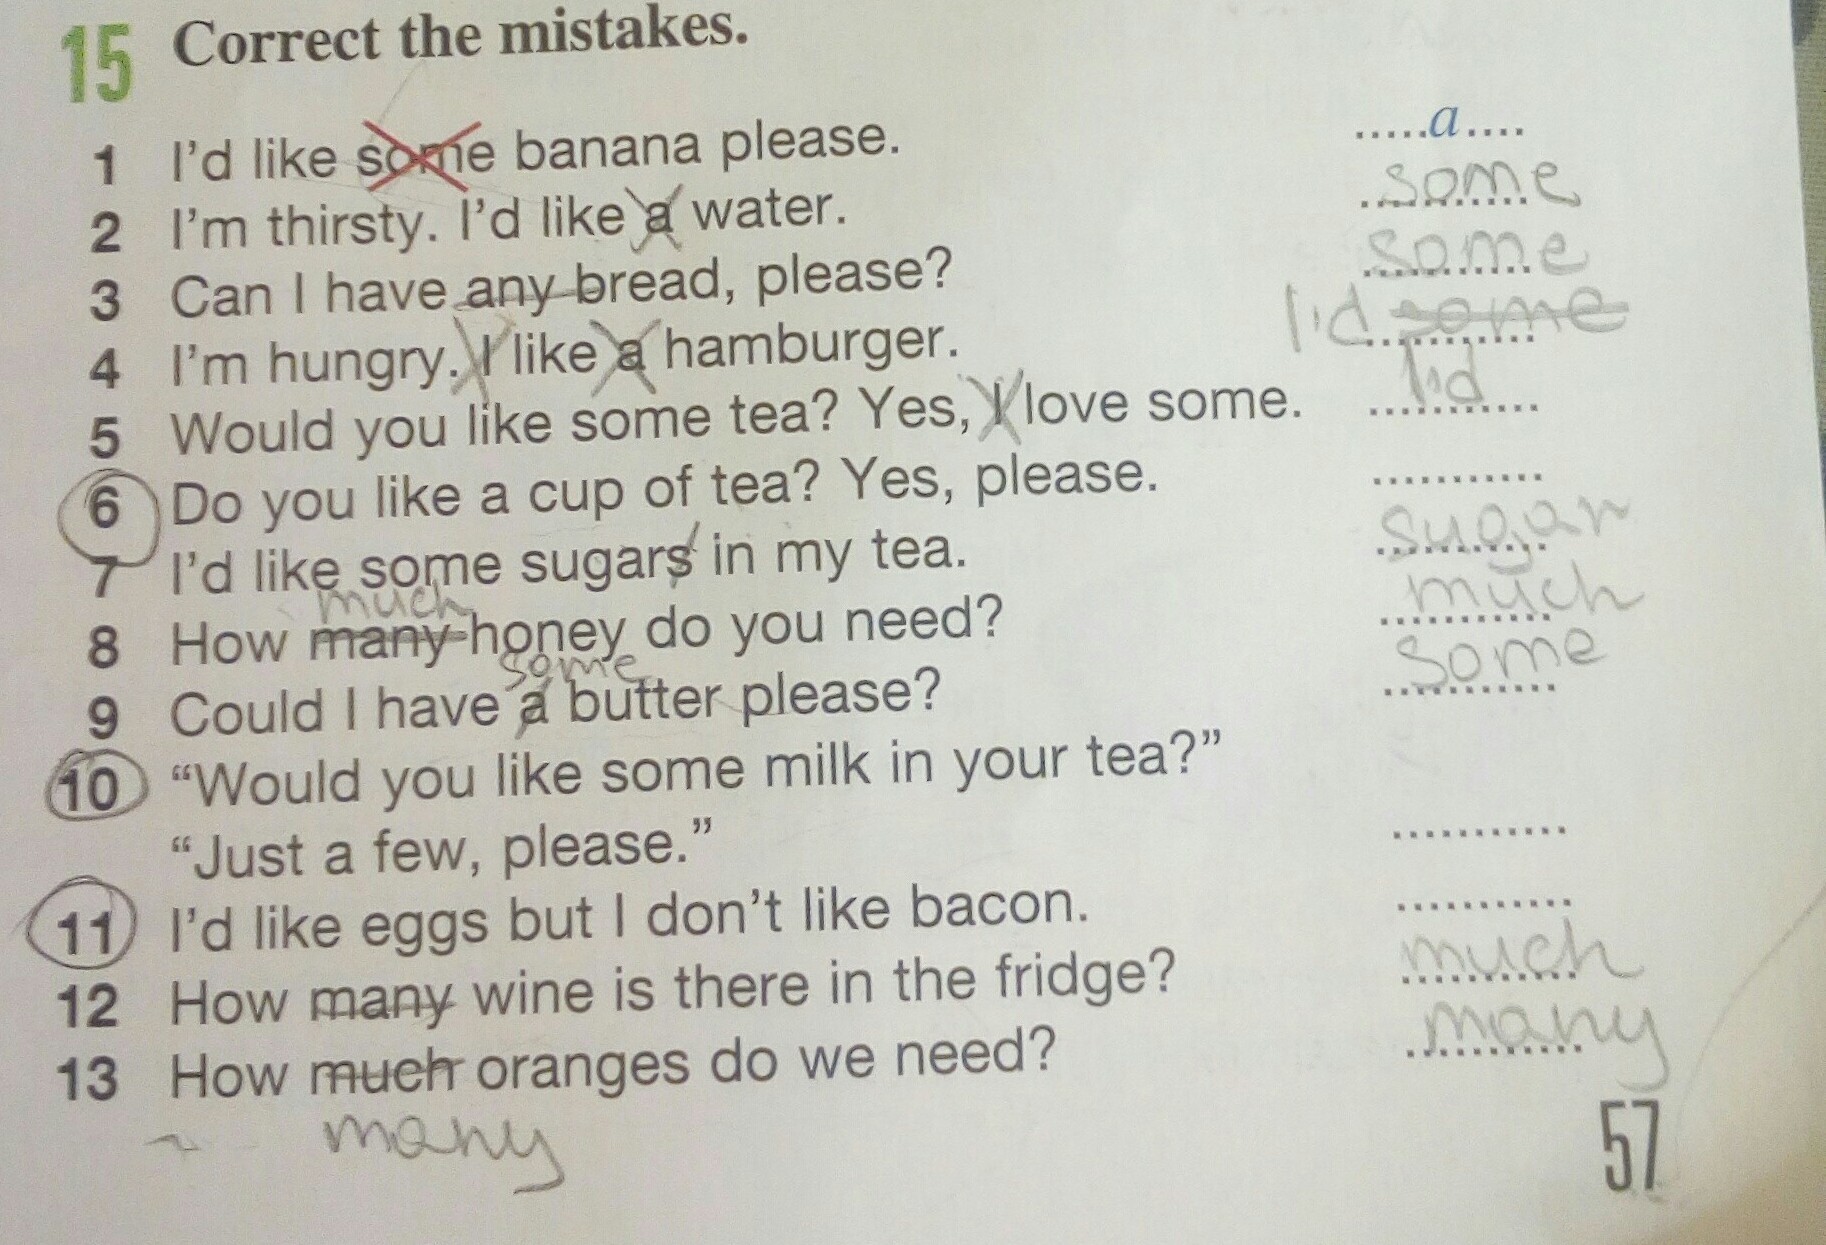 15 Correct the mistakes.
1 I'd like some banana please. .....a....
2 I'm thirsty. I'd like a water. some
3 Can I have any bread, please? some
4 I'm hungry. I like a hamburger. I'd some
5 Would you like some tea? Yes, I love some. I'd
6 Do you like a cup of tea? Yes, please. ...........
7 I'd like some sugars in my tea. sugar
much
8 How many honey do you need? much
some
9 Could I have a butter please? some
10 “Would you like some milk in your tea?”
“Just a few, please.” ...........
11 I'd like eggs but I don't like bacon. ...........
12 How many wine is there in the fridge? much
13 How much oranges do we need? many
many
57